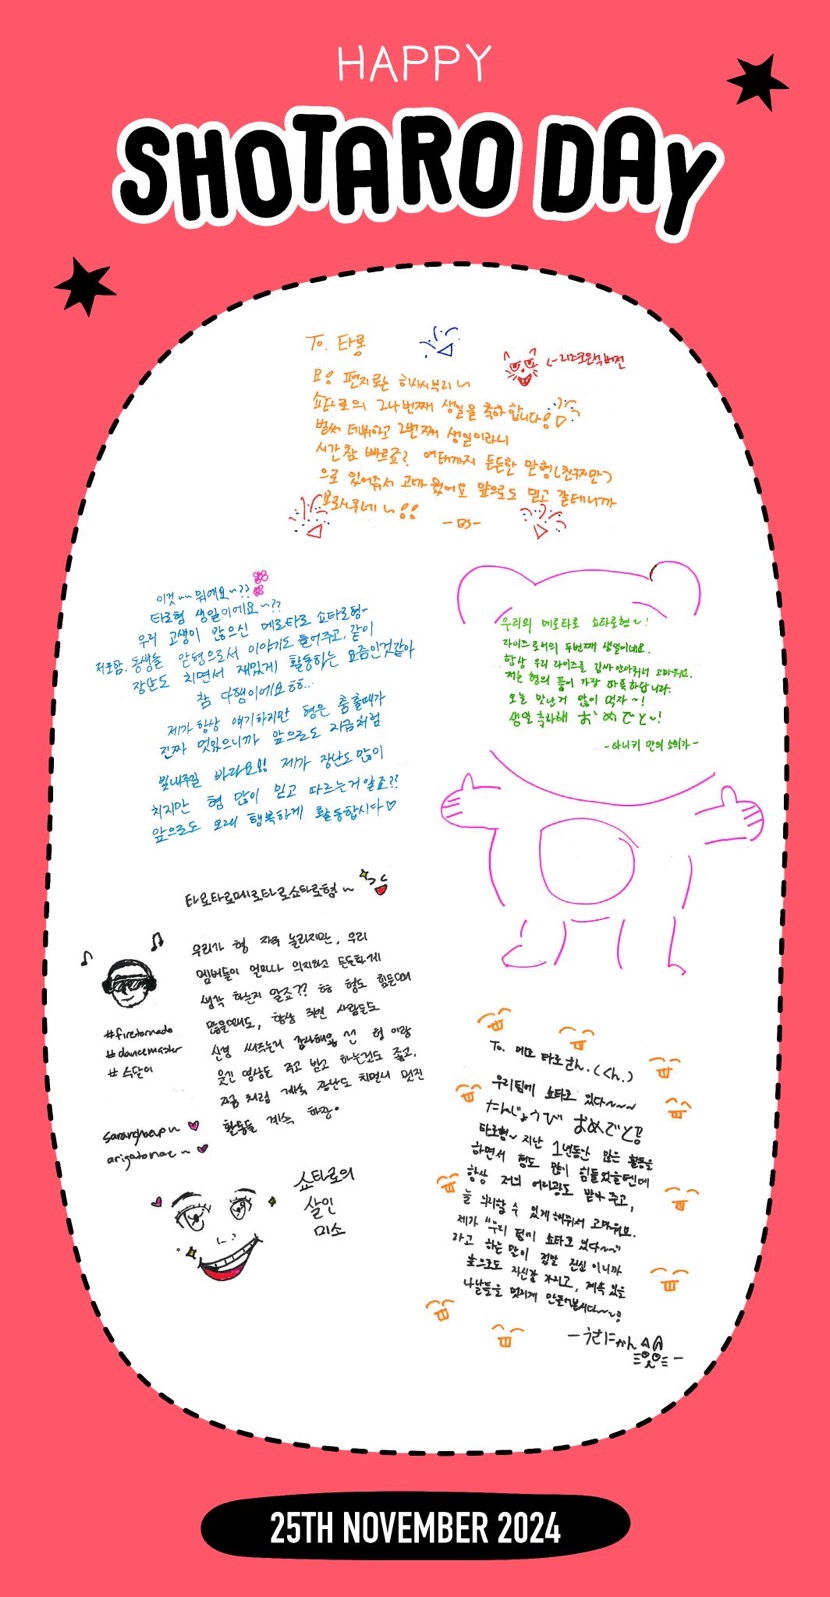 HAPPY
SHOTARO DAY
To. 타롱
요! 편지로는 히사시부리~
쇼타로의 24번째 생일을 축하합니다!
벌써 데뷔하고 2번째 생일이라니
시간 참 빠르죠? 여태까지 든든한 맏형(친구지만)
으로 있어줘서 고마웠어요 앞으로도 믿고 갈테니까
이것~~ 뭐예요~??
타로형 생일이에요~??
우리 고생이 많으신 메로타로 쇼타로형~
저포함, 동생들 맏형으로서 이야기도 들어주고, 같이
장난도 치면서 재밌게 활동하는 요즘인것같아
참 다행이에요 ㅎㅎ...
제가 항상 얘기하지만 형은 춤출때가
진짜 멋있으니까 앞으로도 지금처럼
빛내주길 바라요!! 제가 장난도 많이
치지만 형 많이 믿고 따르는거알죠?!
앞으로도 오래 행복하게 활동합시다♡
우리의 메로타로 쇼타로형~!
라이즈로서의 두번째 생일이네요.
항상 우리 라이즈를 감싸 안아줘서 고마워요.
저는 형의 품이 가장 따뜻하답니다.
오늘 맛난거 많이 먹자~!
생일축하해 おめでと~!
타로타로메로타로쇼타로형~
우리가 형 자주 놀리지만, 우리
멤버들이 얼마나 의지하고 든든하게
생각 하는지 알죠?? ㅎㅎ 형도 힘든데
많을텐데도, 항상 주변 사람들도
신경 써주는거 감사해요 형 이랑
웃긴 영상들 주고 받고 하는것도 좋고,
지금 처럼 계속 장난도 치면서 멋진
활동들 계속 하장.
#firetornado
#dancemaster
#수달이
쇼타로의
살인
미소
타로さん.(くん.)
우리팀에 쇼타로 있다~~~
たんじょうび おめでと
타로형~ 지난 1년동안 많은 활동을
하면서 형도 많이 힘들었을텐데
항상 저의 어리광도 받아 주고,
늘 의지할 수 있게 해줘서 고마워요.
제가 "우리 팀에 쇼타로 있다~~"
라고 하는 말이 정말 진심 이니까
앞으로도 자신감 가지고, 계속 있을
나날들을 멋지게 만들어봅시다~~!
25TH NOVEMBER 2024